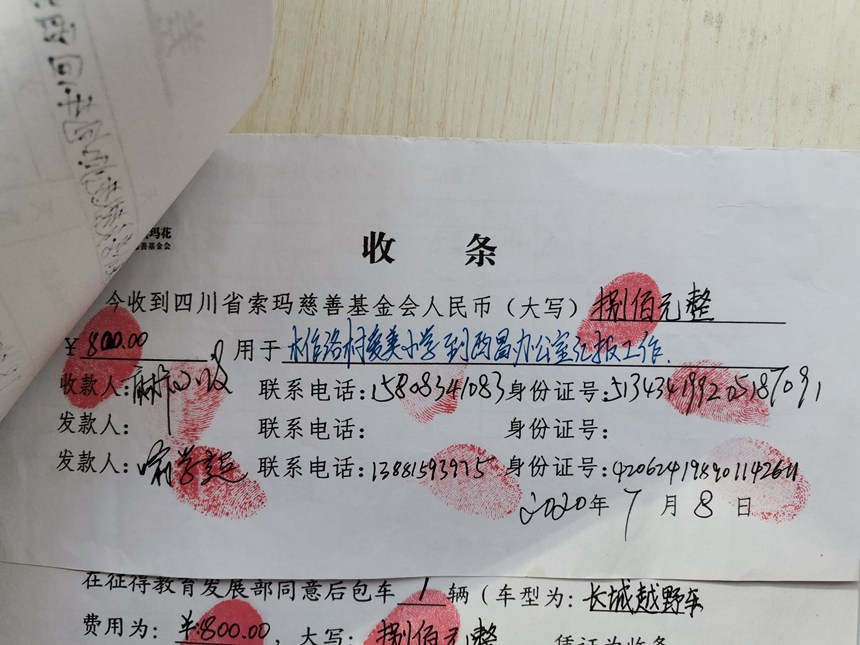 玛花
善基金会
收 条
今收到四川省索玛慈善基金会人民币（大写）捌佰元整
¥800.00 用于 村爱美小学到西昌办公室汇报工作.
收款人: 联系电话:15808341083 身份证号:513434199205187091
发款人: 联系电话: 身份证号:
发款人: 联系电话:13881593975 身份证号:420624198901142611
2020年 7 月 8 日
在征得教育发展部同意后包车 1 辆（车型为:长城越野车
费用为: ¥:800.00, 大写: 捌佰元整 凭证为收条